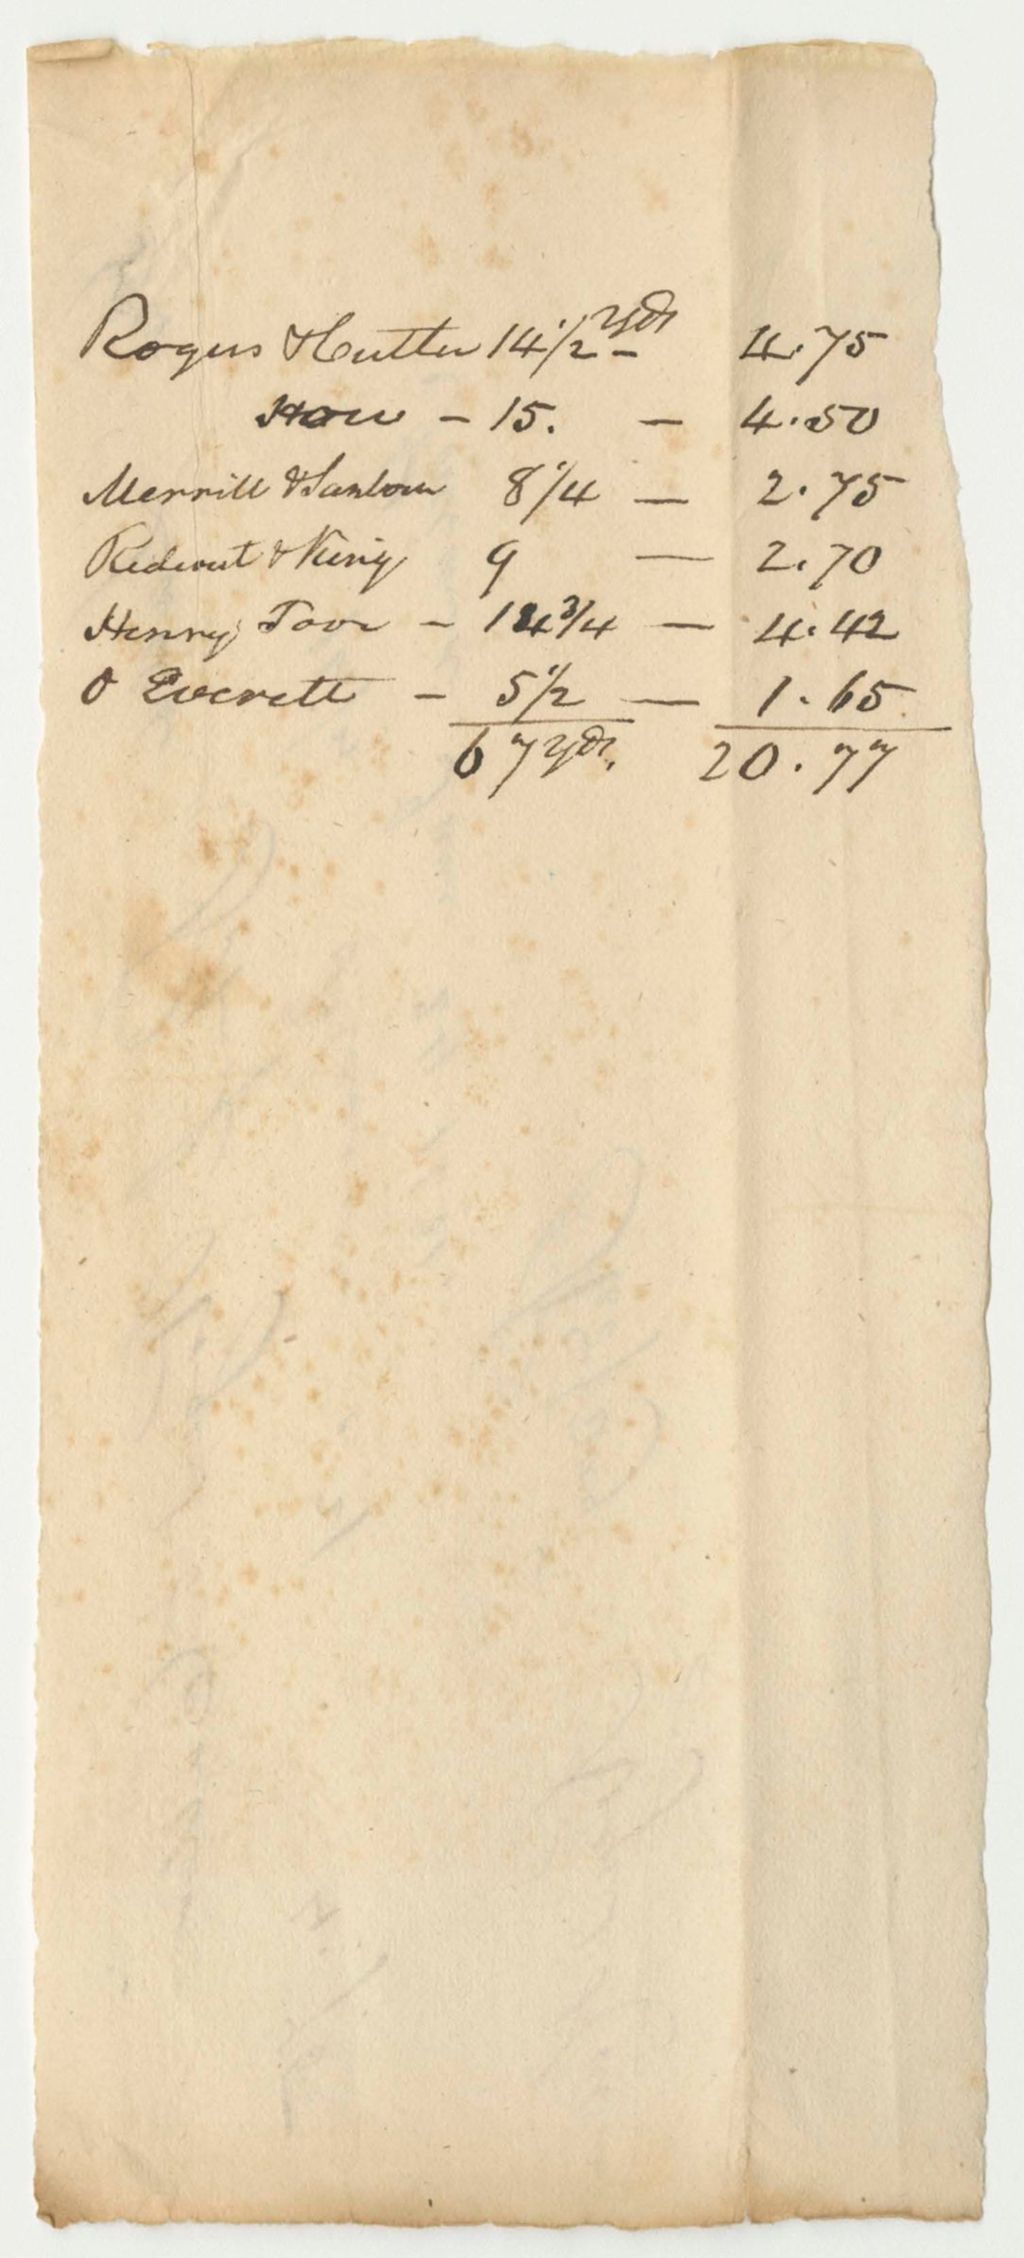 Rogers & Cutler 14 1/2 yds - 4.75
How - 15. - 4.50
Merrill & Sanborn 8 1/4 - 2.75
Rideout & King 9 - 2.70
Henry - 14 3/4 - 4.42
O Everett - 5 1/2 - 1.65
67 yds. 20.77